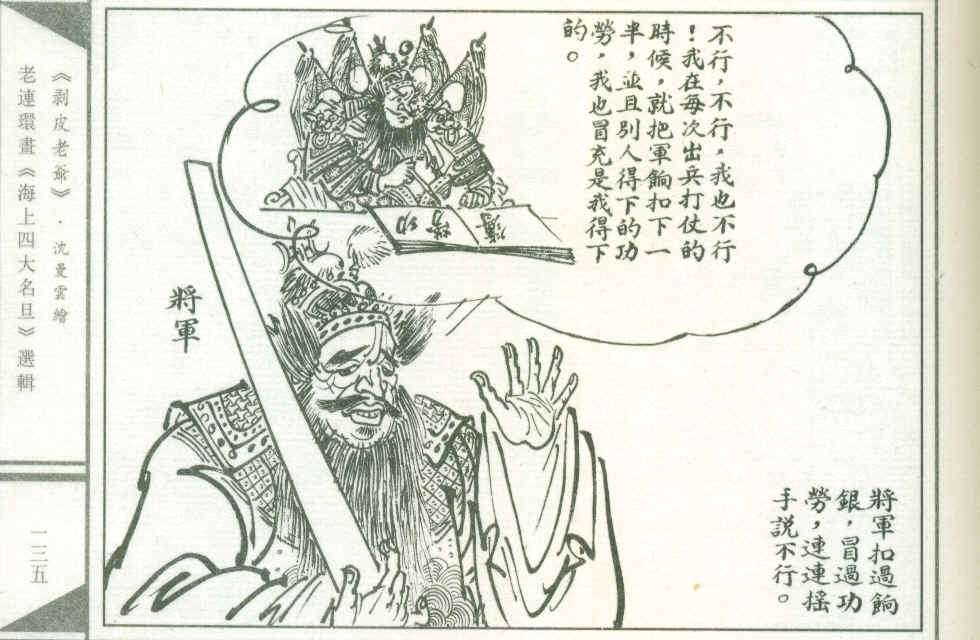 不行，不行，我也不行
！我在每次出兵打仗的
時候，就把軍餉扣下一
半，並且別人得下的功
勞，我也冒充是我得下
的。
功勞簿
將軍
將軍扣過餉
銀，冒過功
勞，連連搖
手説不行。
《剥皮老爺》．沈曼雲繪
老連環畫《海上四大名旦》選輯
一三五